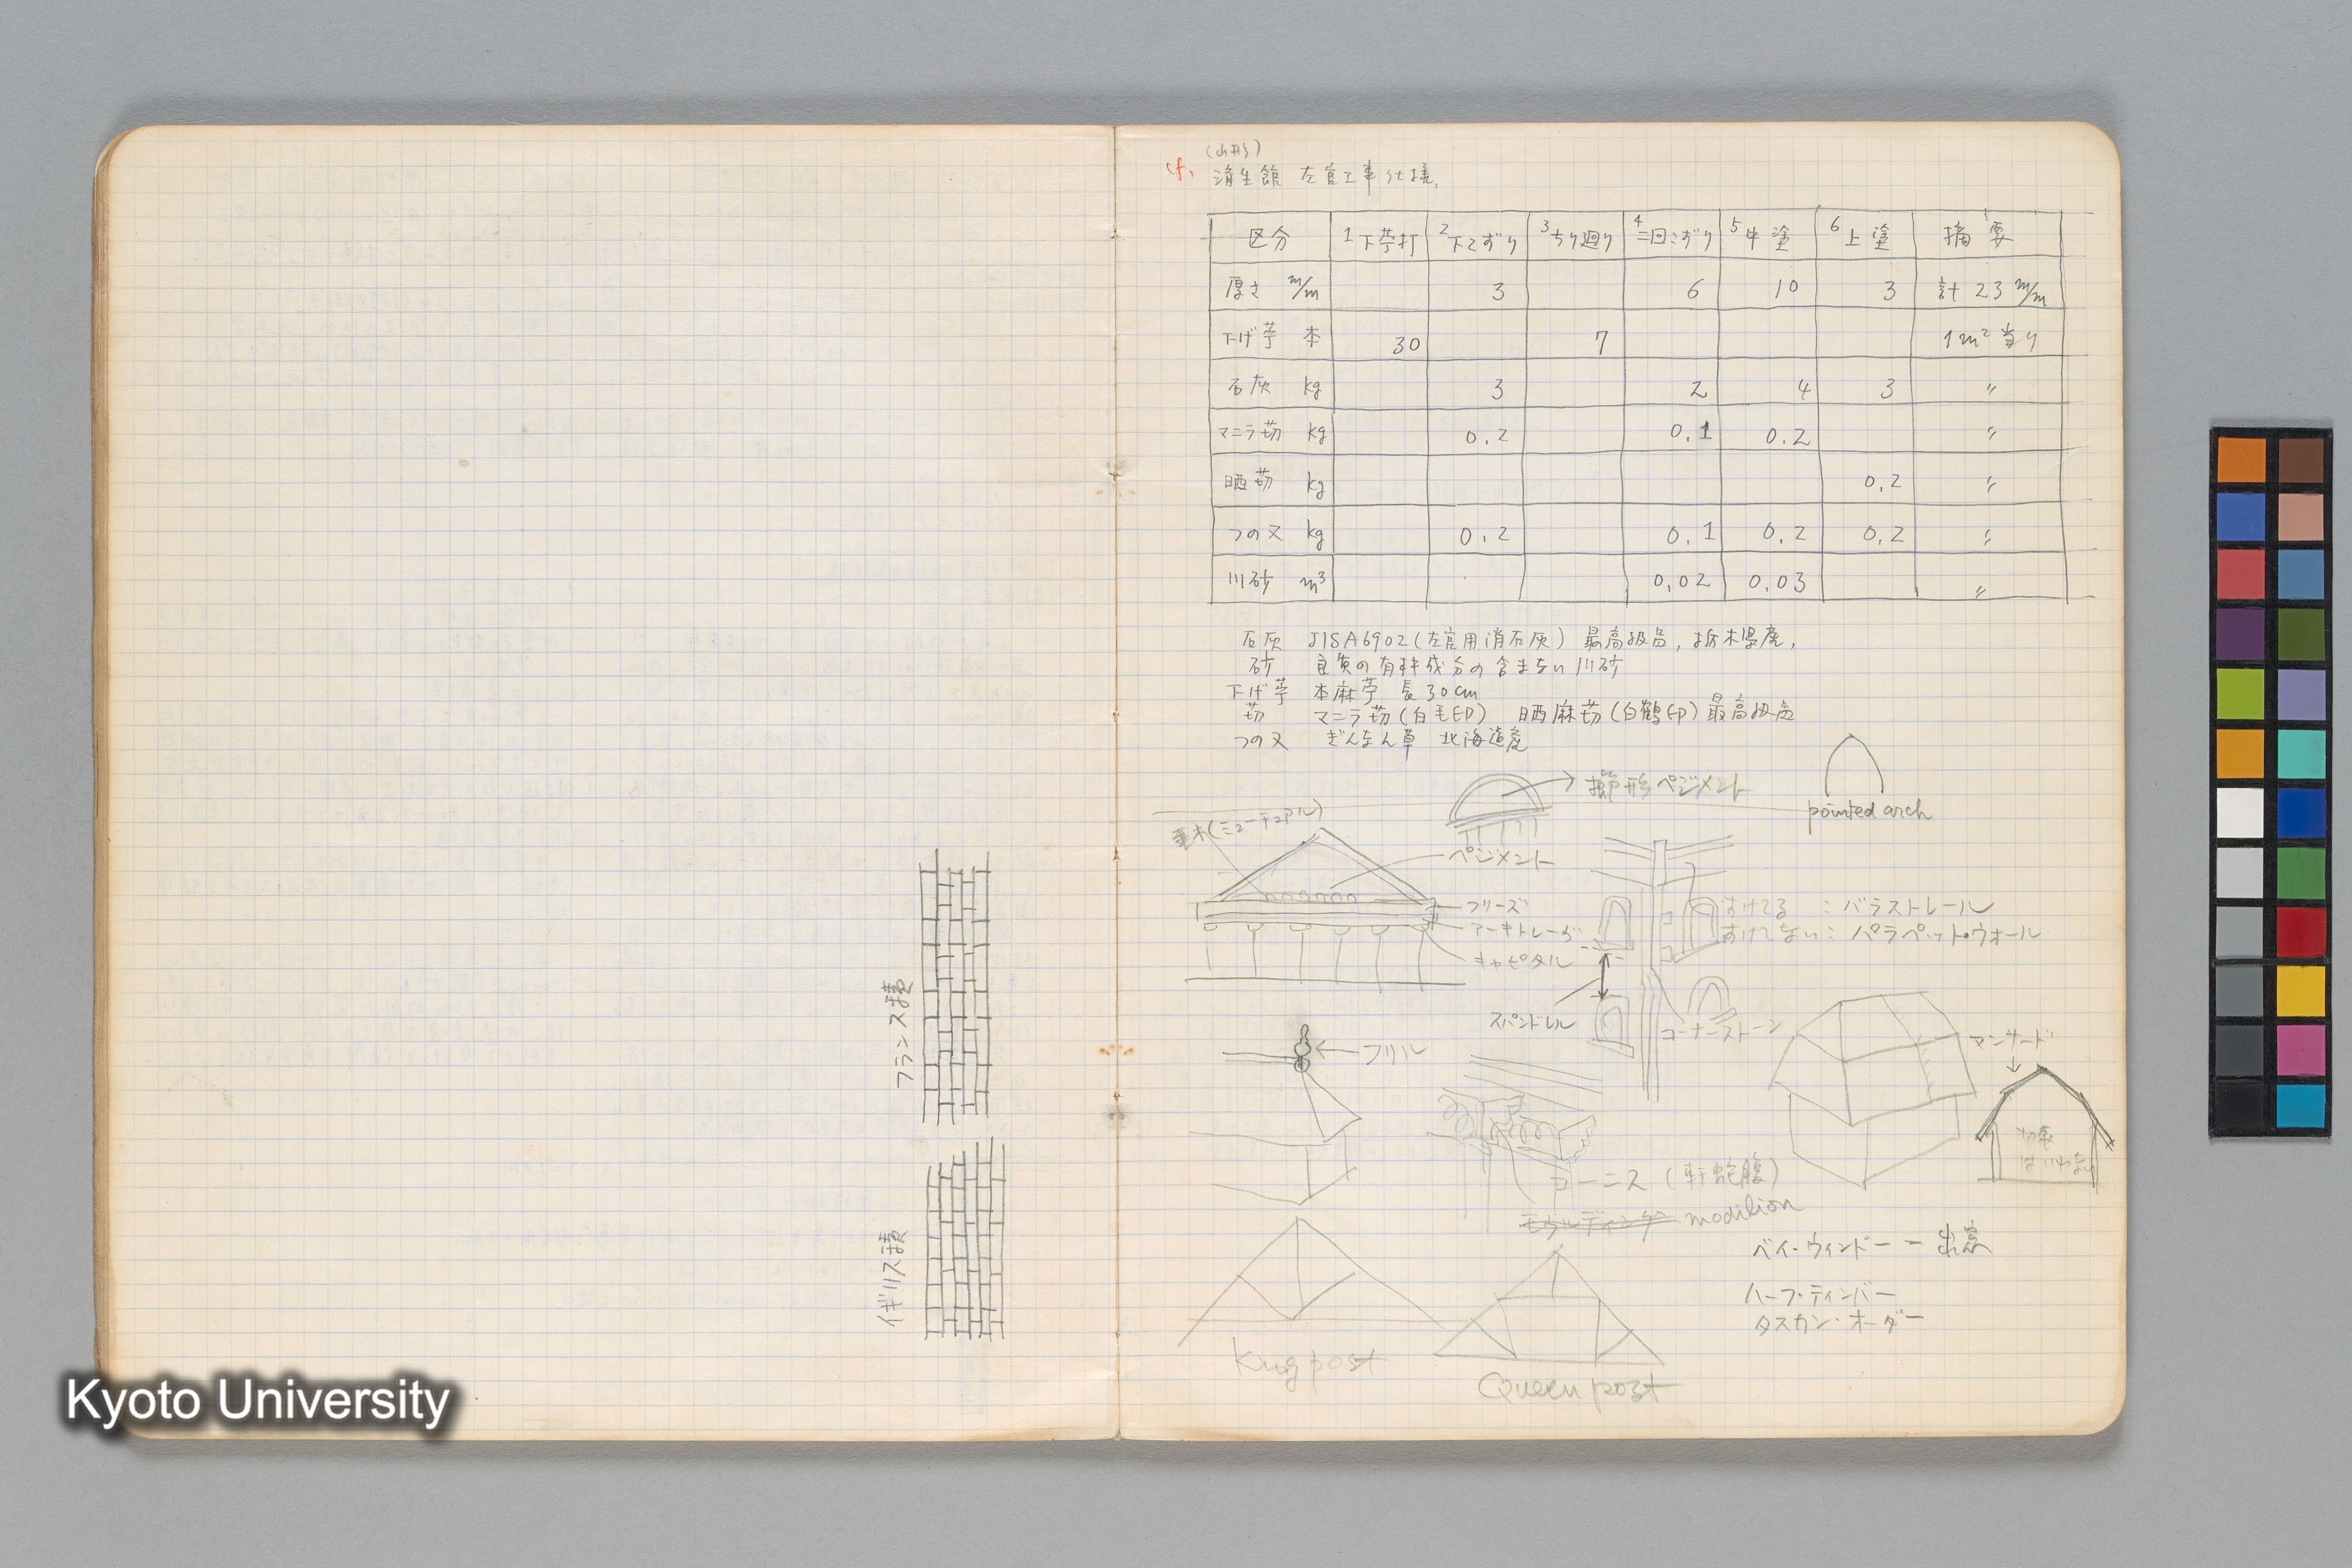 フランス積
イギリス積
(山形)
cf. 済生館 左官工事仕様.
区分 1 下苧打 2 下こすり 3 ちり廻り 4 二回こすり 5 中塗 6 上塗 摘要
厚さ m/m 3 6 10 3 計 23 m/m
下げ苧 本 30 7 1m² 当り
石灰 kg 3 2 4 3 〃
マニラ苆 kg 0.2 0.1 0.2 〃
晒苆 kg 0.2 〃
つの又 kg 0.2 0.1 0.2 0.2 〃
川砂 m³ 0.02 0.03 〃
石灰 JISA6902(左官用消石灰) 最高級品, 栃木県産,
砂 良質の有害成分の含まない川砂
下げ苧 本麻苧 長30cm
苆 マニラ苆(白毛印) 晒麻苆(白鶴印)最高級品
つの又 ぎんなん草 北海道産
櫛形ペジメント
pointed arch
垂木(ミューチュアル)
ペジメント
フリーズ
アーキトレーヴ
キャピタル
すけてる : バラストレール
すけてない: パラペット・ウォール
スパンドレル
コーナーストーン
フリル
マンサード
切妻
はいわない
コーニス (軒蛇腹)
モウルディング modilion
ベイ・ウィンドー ー 出窓
ハーフ・ティンバー
タスカン・オーダー
King post
Queen post
Kyoto University